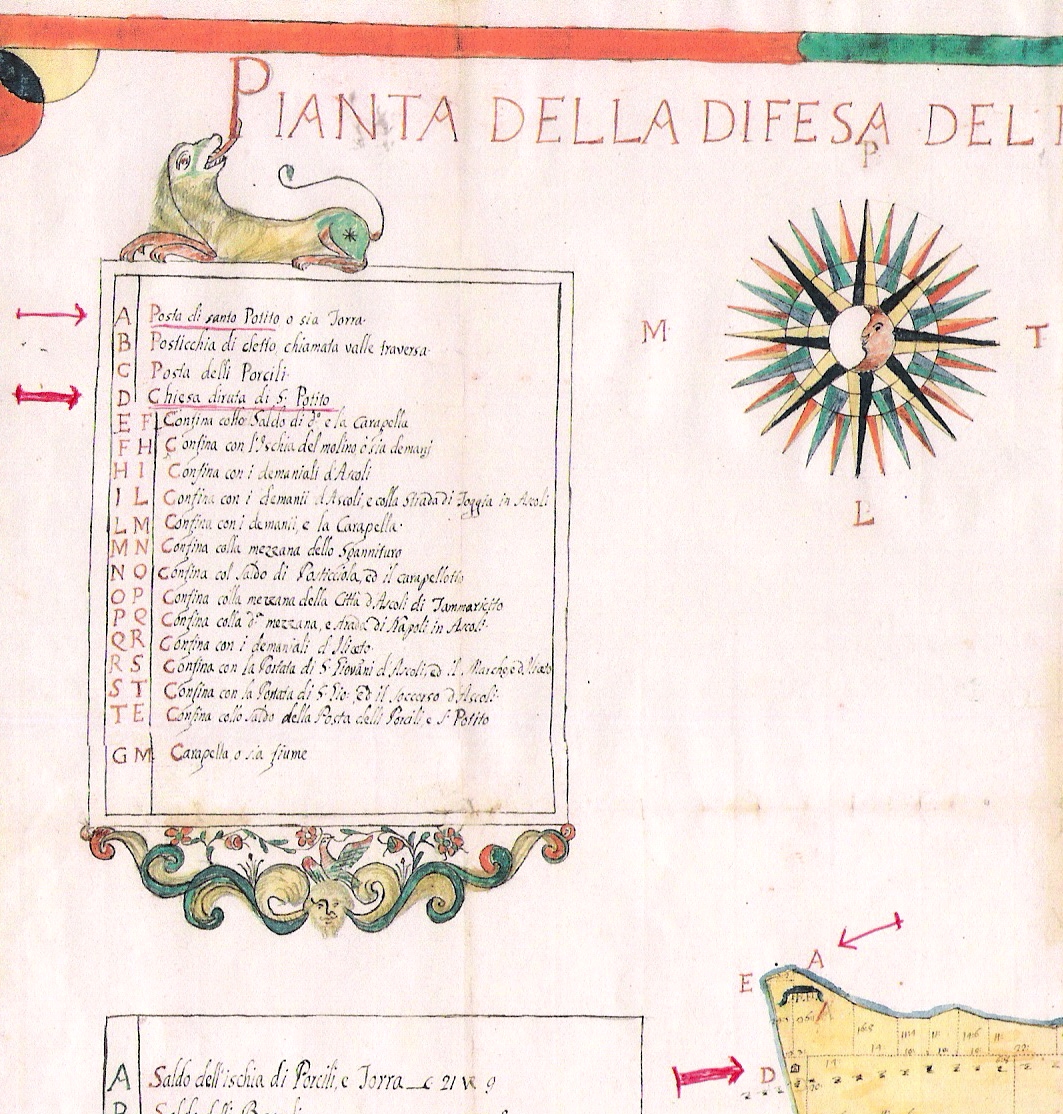 PIANTA DELLA DIFESA DEL
P
M
T
L
A Posta di santo Potito o sia Torra
B Posticchia di detto, chiamata valle traversa
C Posta delli Porcili
D Chiesa diruta di S. Potito
E F Confina collo Saldo di d.ᵃ e la Carapella
F H Confina con l'Ischia del molino o sia demanj
H I Confina con i demaniali d'Ascoli
I L Confina con i demanii d'Ascoli, e colla strada di Foggia in Ascoli
L M Confina con i demanii, e la Carapella
M N Confina colla mezzana dello Spannituro
N O Confina col saldo di Posticciola, ed il carapellotto
O P Confina colla mezzana della Città d'Ascoli di Tammaricito
P Q Confina colla d.ᵃ mezzana, e strada di Napoli in Ascoli
Q R Confina con i demaniali d'Iliceto
R S Confina con la Portata di S. Giovãni d'Ascoli, ed il Marchese d'Iliceto
S T Confina con la Portata di S. Gio: ed il soccorso d'Ascoli
T E Confina collo saldo della Posta delli Porcili, e S. Potito
G M Carapella o sia fiume
E
A
D
A Saldo dell'ischia di Porcili, e Torra